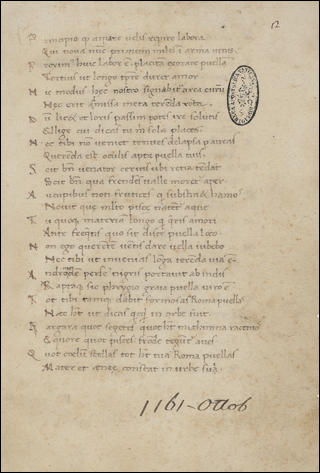 Principio q amare velis repire labora
Qui nova nunc primum miles i arma venis
Proxim huic labor e placita exorare puella
Tertius ut longo tpre duret amor
Hic modus hec nostro signabit area curru
Hec erit amissa meta terenda rota
D licet et loris passim potes ire solutis
Ellige cui dicas tu m sola places
Hec tibi no veniet tenues delapsa p auras
Querenda est oculis apta puella tuis
Scit bn venator cervis ubi retia tedat
Scit bn qua frendes valle moret aper
Aucupibus noti frutices q sustinet hamos
Novit que multo pisce natent aque
Tu quoq materiam longo q queris amori
Ante frequens quo sit disce puella loco
Non ego querente ventis dare vella iubebo
Nec tibi ut invenias longa terenda via e
Andromeda perseus nigris portavit ab indis
Raptaq sit phrygio graia puella viro
Tot tibi tamq dabit formosas Roma puellas
Hec habet ut dicas in orbe fuit
Gargara quot segetes quot het racemos
Equore quot pisces frode tegunt aves
Quot coelum stellas tot het tua Roma puellas
Mater et enee constat in urbe sui
1161-Ottob